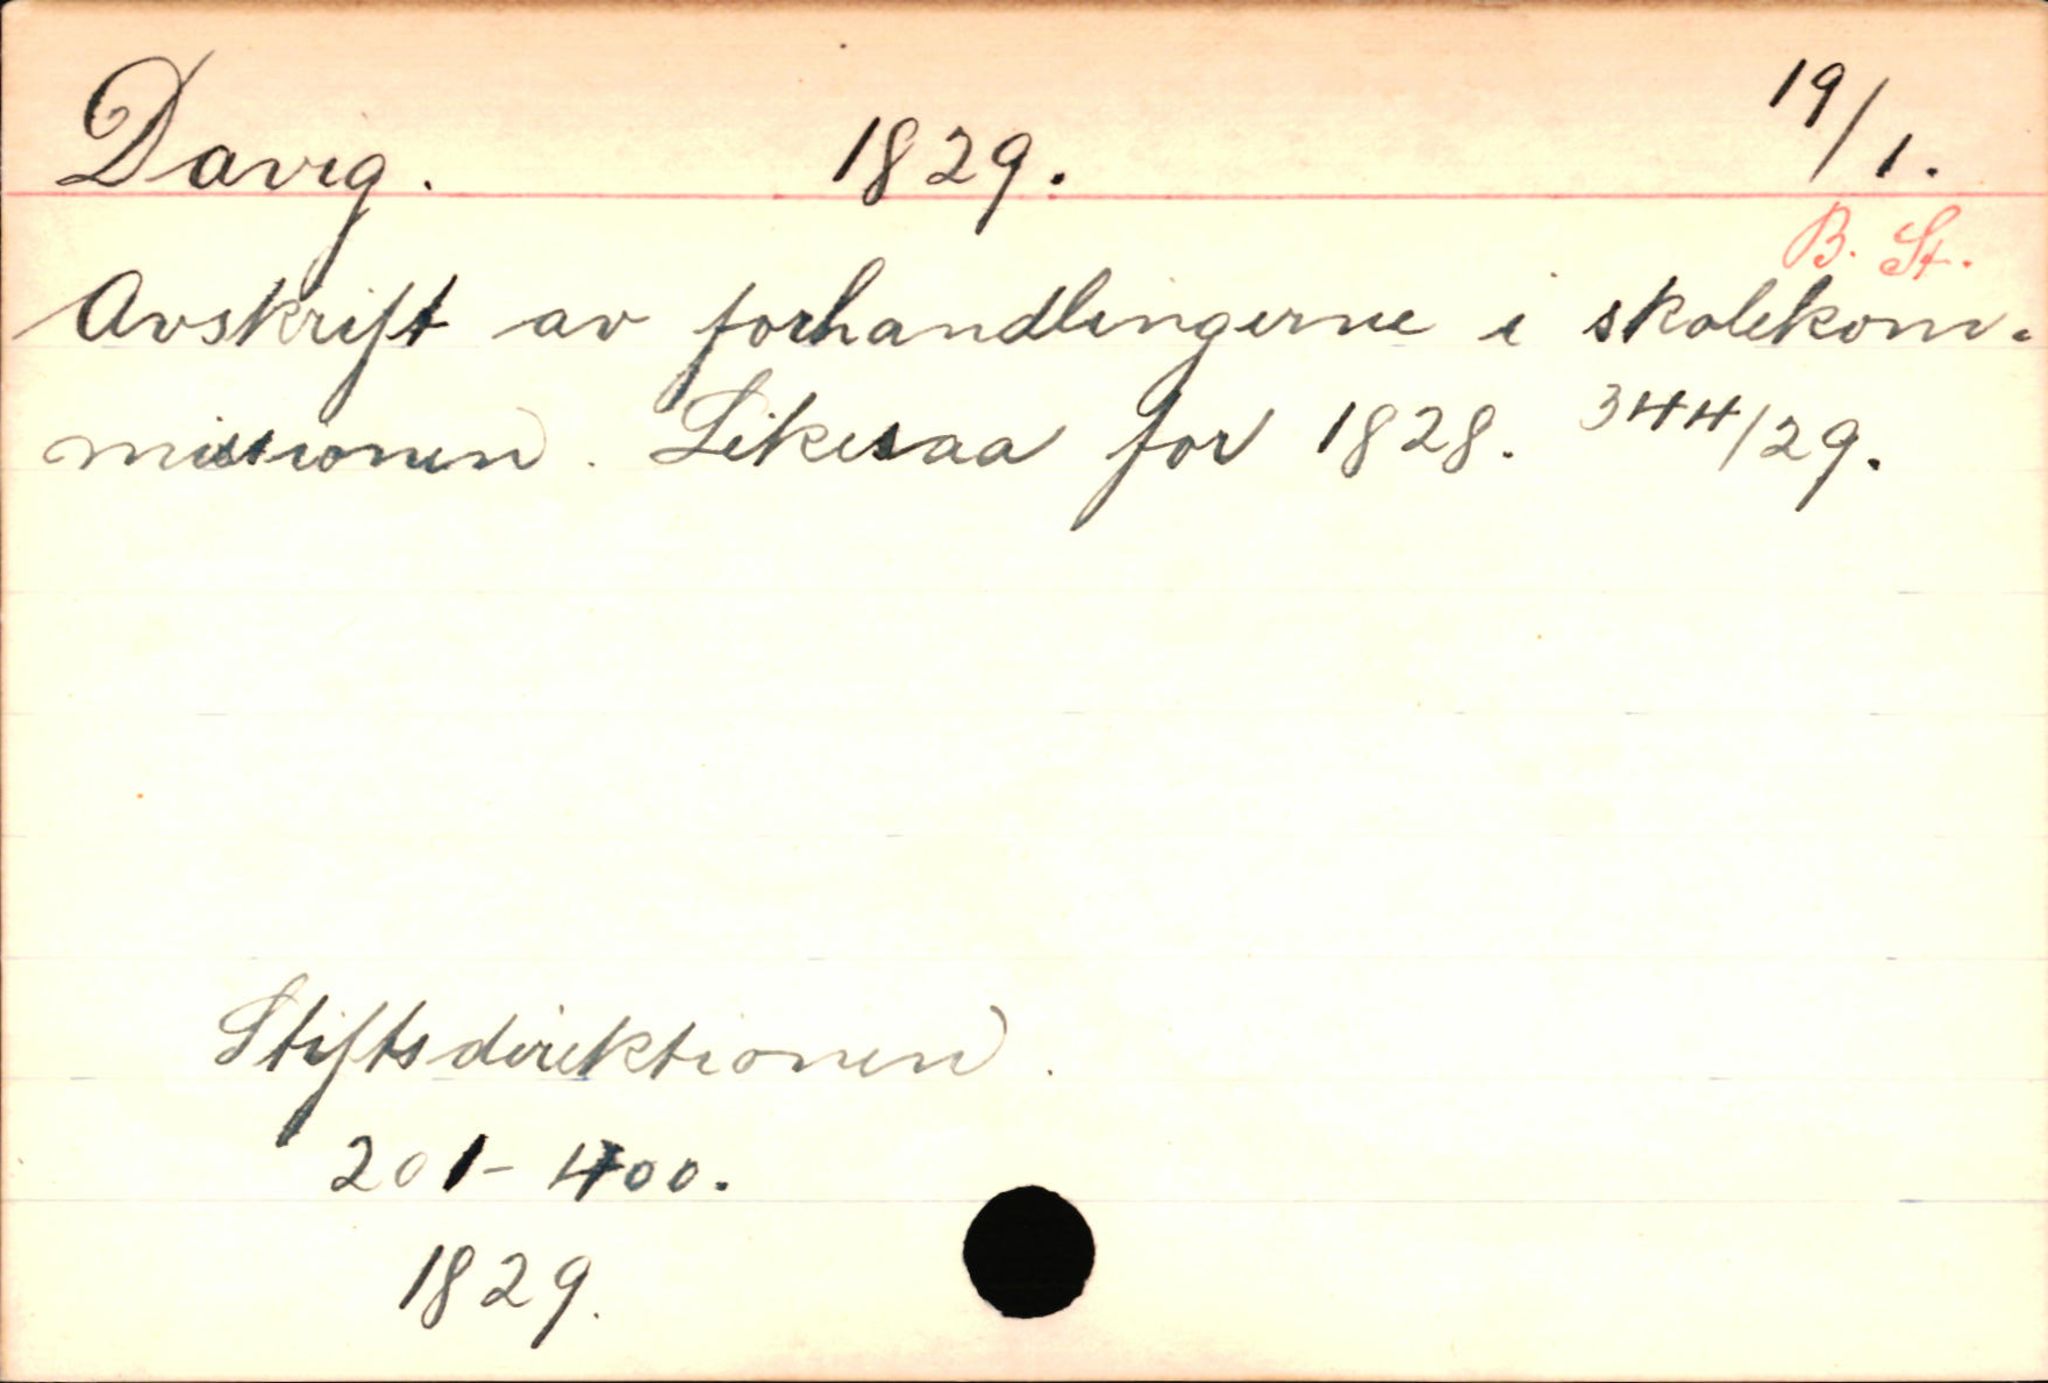 Davig. 1829. 19/1.
B. St.
Avskrift av forhandlingerne i skolekom-
missionen. Likesaa for 1828. 344/29.
Stiftsdirektionen.
201-400.
1829.